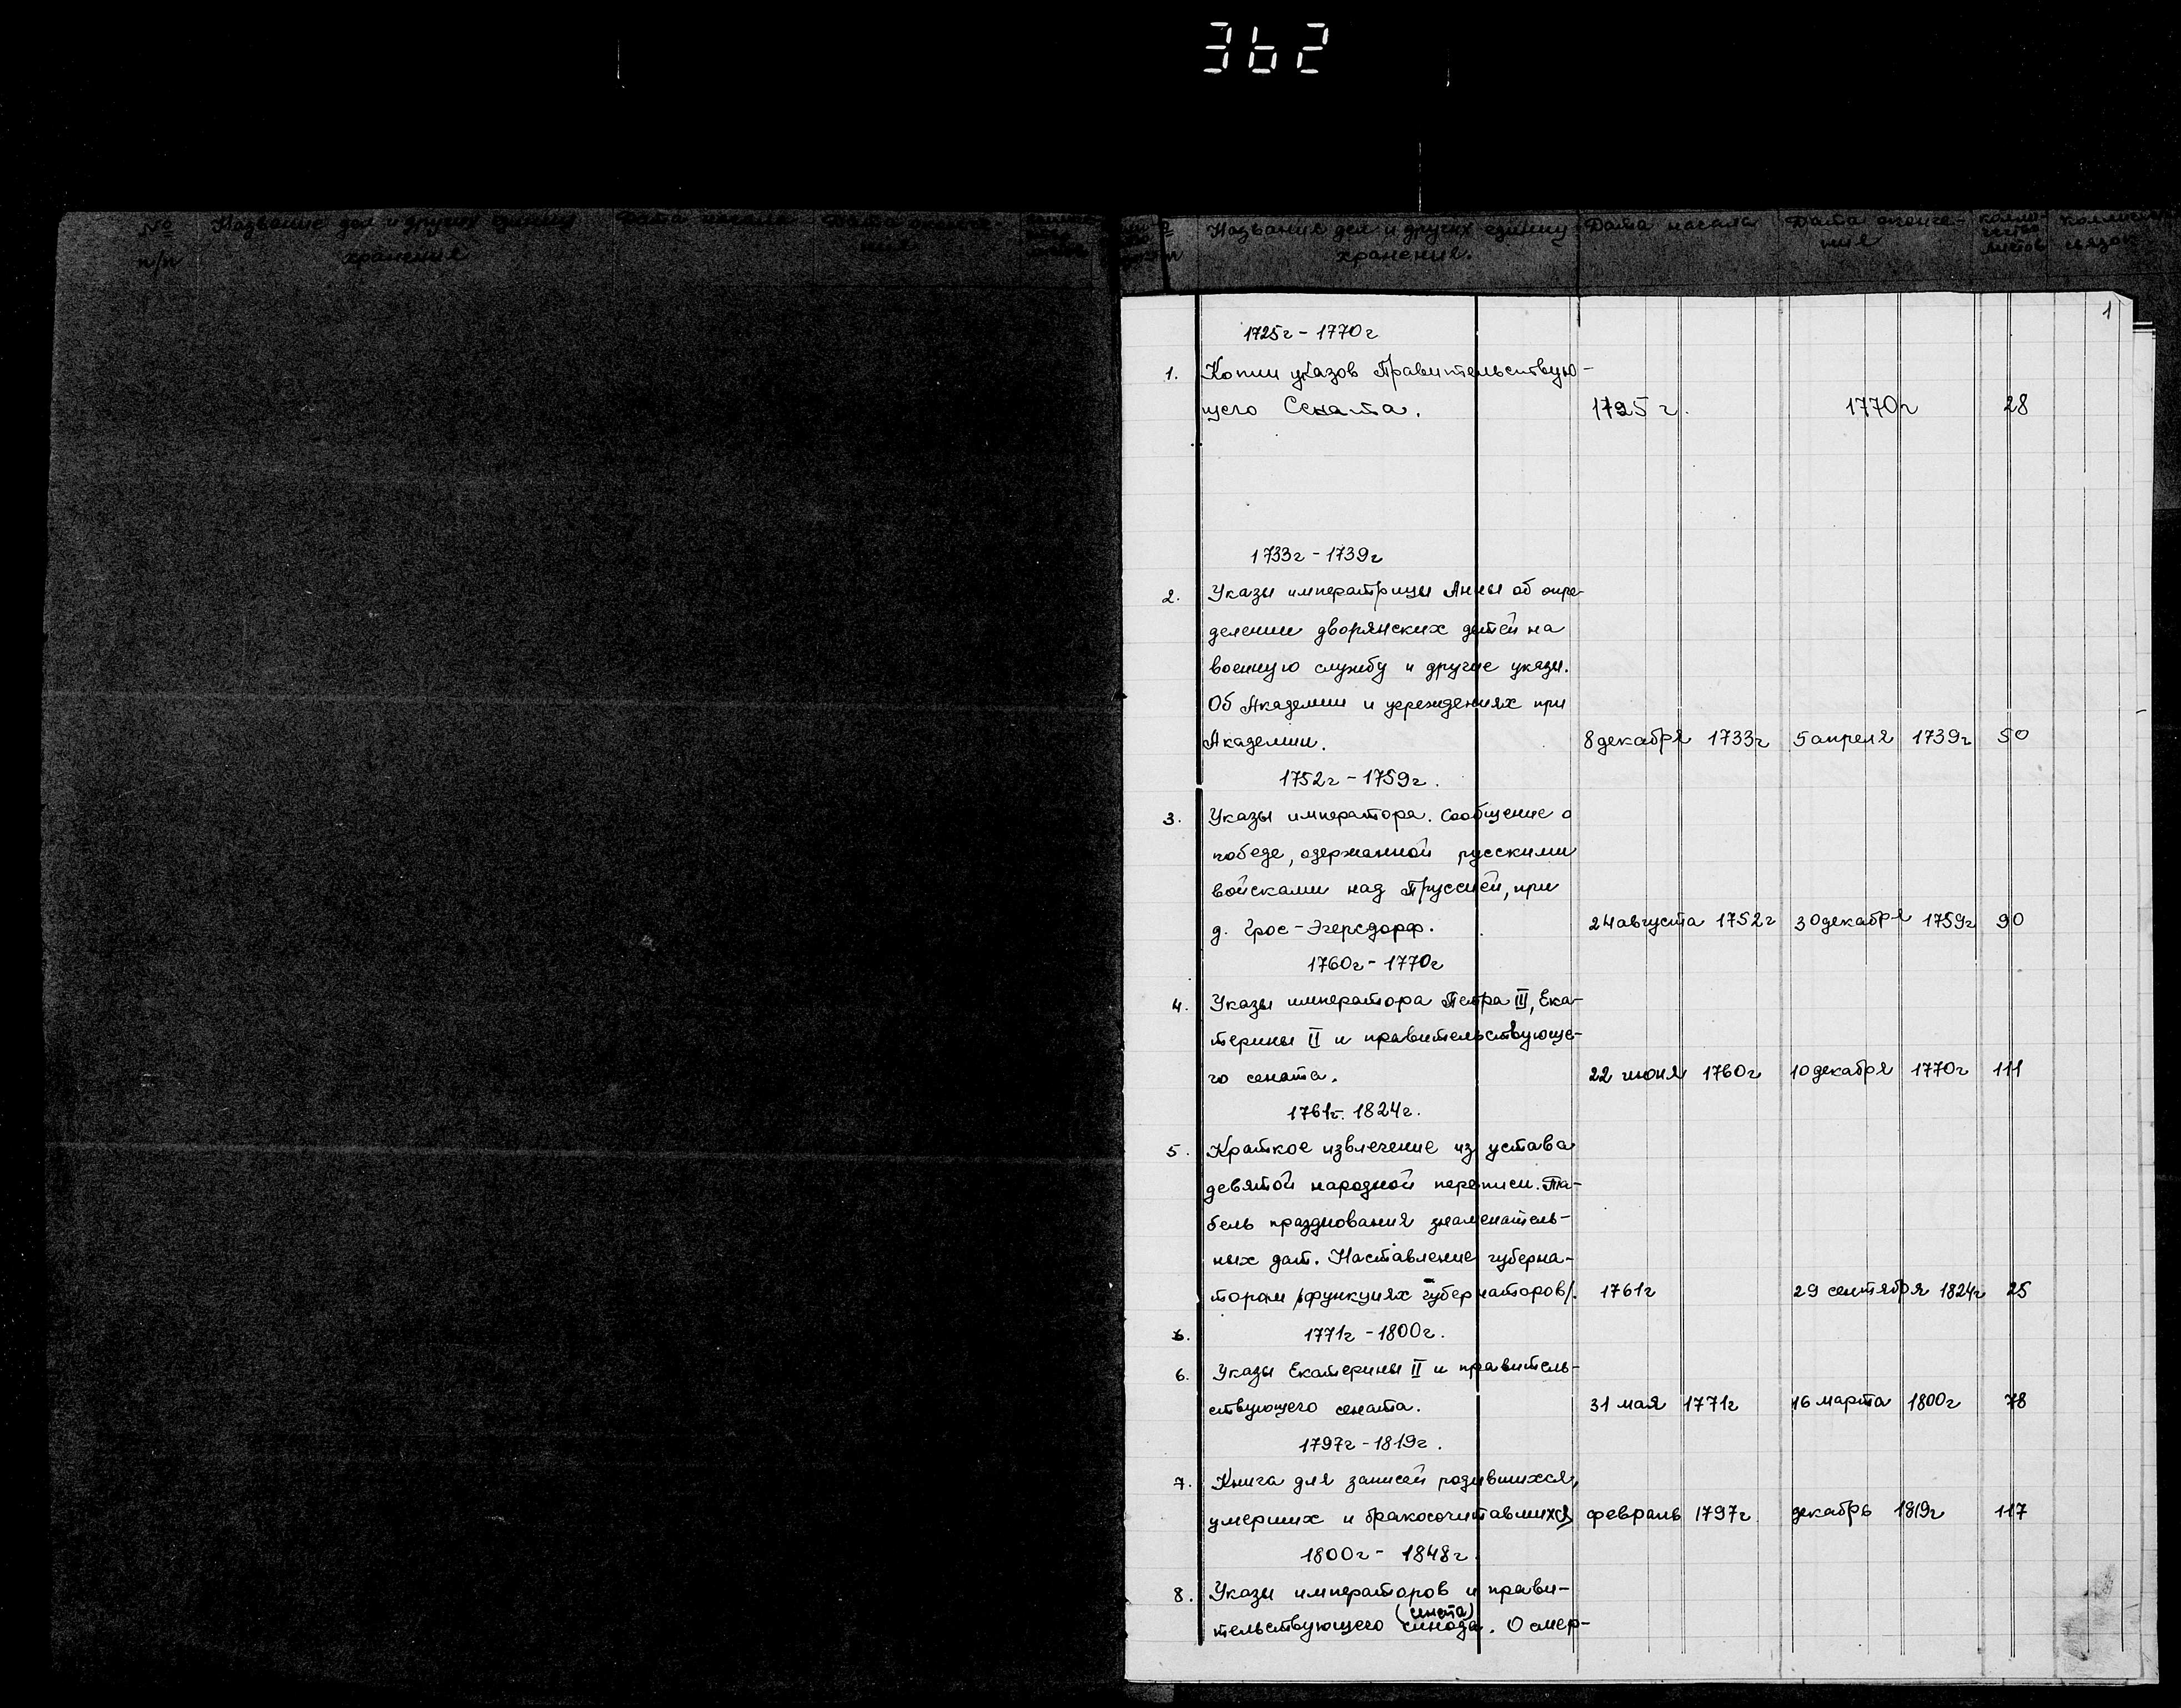 362
№ Название дел и других единиц Дата начала Дата оконча-
п/п хранения ния
Название дел и других единиц Дата начала Дата оконче- коли-
хранения. ния чество
листов связок
1
1725г - 1770г
1. Копии указов Правительствую-
щего Сената. 1725 г. 1770г 28
1733г - 1739г
2. Указы императрицы Анны об опре-
делении дворянских детей на
военную службу и другие указы.
Об Академии и учреждениях при
Академии. 8 декабря 1733г 5 апреля 1739г 50
1752г - 1759г.
3. Указы императора. Сообщение о
победе, одержанной русскими
войсками над Пруссией, при
д. Грос-Эгерсдорф. 24 августа 1752г 30 декабря 1759г 90
1760г - 1770г
4. Указы императора Петра III, Ека-
терины II и правительствующе-
го сената. 22 июня 1760г 10 декабря 1770г 111
1761г. 1824г.
5. Краткое извлечение из устава
девятой народной переписи. Та-
бель празднования знаменатель-
ных дат. Наставление губерна-
торам /функциях губернаторов/. 1761г 29 сентября 1824г 25
6. 1771г - 1800г.
6. Указы Екатерины II и правитель-
ствующего сената. 31 мая 1771г 16 марта 1800г 78
1797г - 1819г.
7. Книга для записей родившихся,
умерших и бракосочитавшихся февраль 1797г декабрь 1819г 117
1800г - 1848г.
8. Указы императоров и прави-
(сената)
тельствующего синода. О смер-